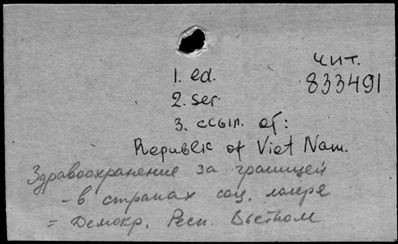 чит.
833491
1. ed.
2. ser.
3. ссыл. от:
Republic of Viet Nam.
Здравоохранение за границей
- в странах соц. лагеря
= Демокр. Респ. Вьетнам